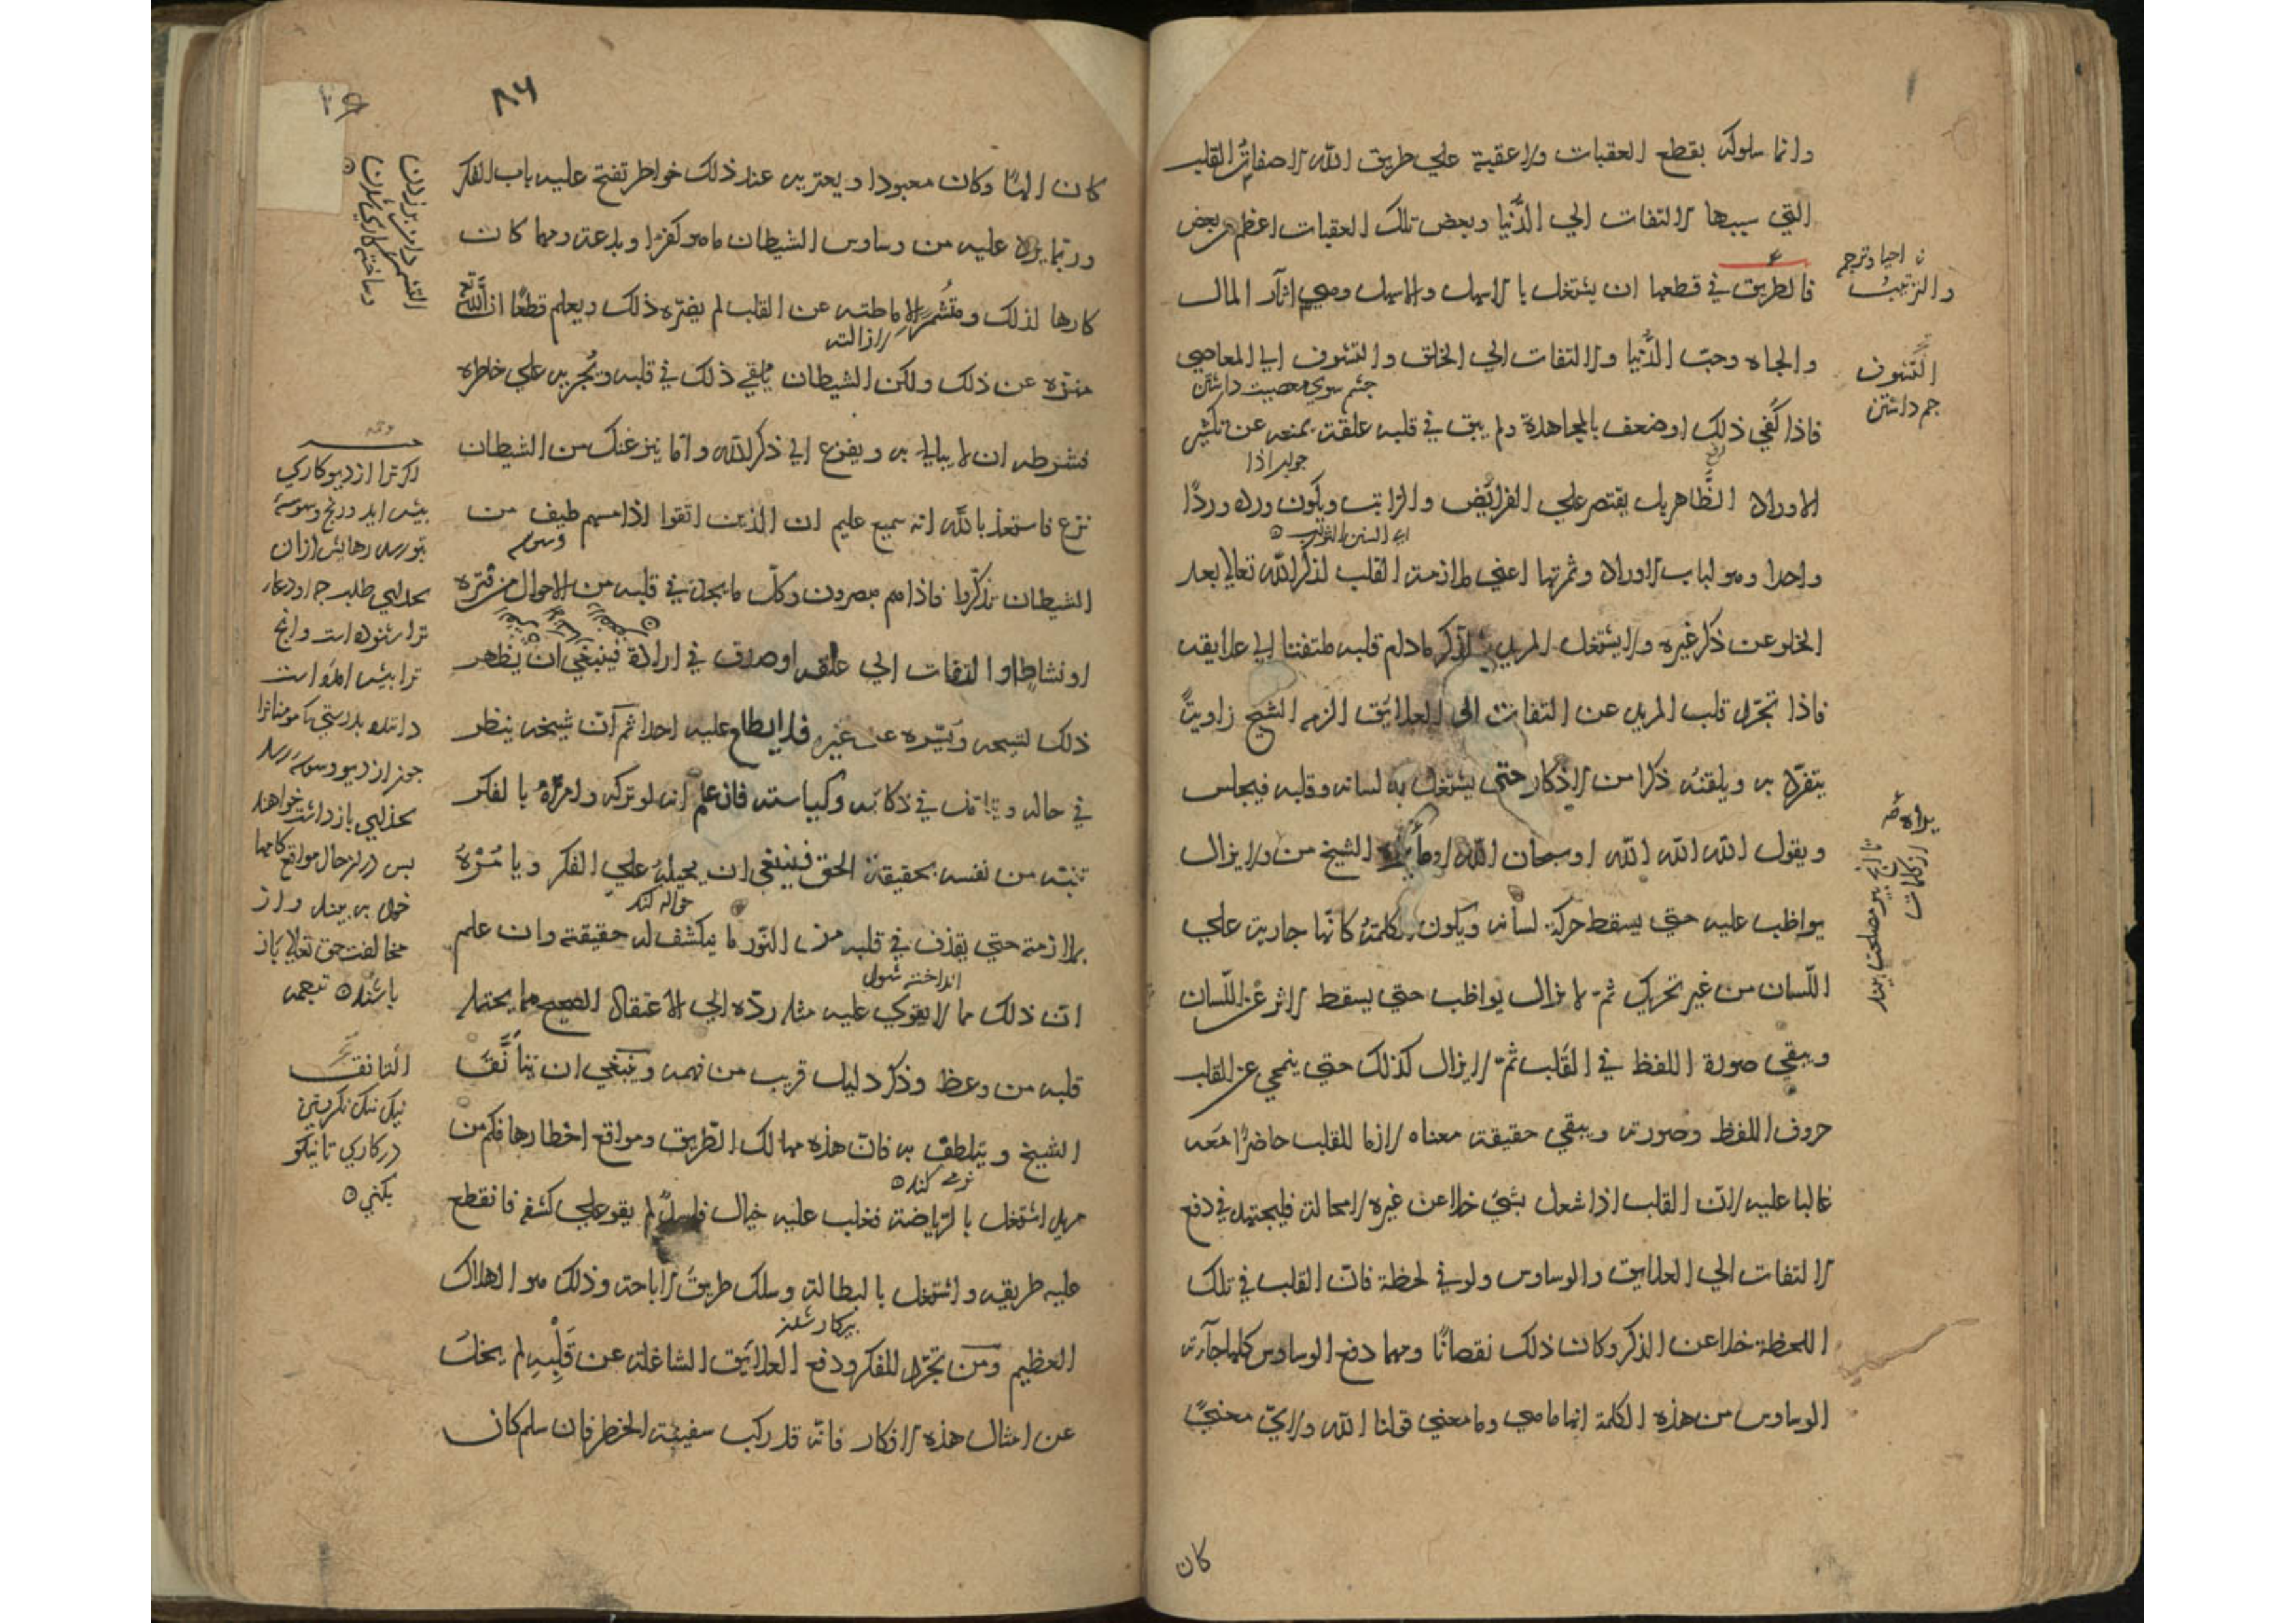 وانما سلوكه بقطع العقبات ولا عقبة علي طريق الله الا صفات القلب
التي سببها الالتفات الي الدُّنيا وبعض تلك العقبات اعظم من بعض
فالطريق في قطعها ان يشتغل بالاسهل والاسهل وهي اثار المال
والجاه وحبّ الدُّنيا والالتفات الي الخلق والتشوف الي المعاصي
چشم سوي معصيت داشتن
فاذا كُفي ذلك او ضعف بالمجاهدة ولم يبق في قلبه علقة يمنعه عن تكثير
جواب اذا
الاوراد الظّاهر بل يقتصر علي الفرائض والرّاتب ويكون ورده وردًا
اي السنن الرواتب
واحدا وهو لباب الاوراد وثمرتها اعني ملازمة القلب لذكر الله تعالي بعد
الخلو عن ذكر غيره ولا يشتغل المريد بالذكر مادام قلبه ملتفتا الي علايقه
فاذا تجرّد قلب المريد عن التفات الي العلائق الزمه الشيخ زاويةً
يتفرّد به ويلقنه ذكرا من الاذكار حتي يشتغل به لسانه وقلبه فيجلس
ويقول الله الله الله او سبحان الله او ما يراه الشيخ من ولا يزال
يواظب عليه حتي يسقط حركة لسانه ويكون الكلمة كانّها جارية علي
اللّسان من غير تحريك ثمّ لا يزال يواظب حتي يسقط الاثر عن اللّسان
ويبقي صورة اللفظ في القَلب ثمّ لا يزال كذلك حتي ينمحي عن القلب
حروف اللفظ وصورته ويبقي حقيقة معناه لازما للقلب حاضرًا معَه
غالبا عليه لانّ القلب اذا شغل بشئ خلا عن غيره لا محالة فليجتهد في دفع
الالتفات الي العلايق والوساوس ولو في لحظة فانّ القلب في تلك
اللحظة خلا عن الذكر وكان ذلك نقصانًا ومهما دفع الوساوس كلها جآءته
الوساوس من هذه الكلمة انها ما هي وما معني قولنا الله ولايّ معنيً
كان
والترتيب
التَّشوف
چم داشتن
تا انچ پير مصلحت بيند
از كلمات
٨٦
كان الهًا وكان معبودا ويعتريه عند ذلك خواطر تفتح عليه باب الفكر
وربّما يرد عليه من وساوس الشيطان ما هو كفرا وبدعة ومهما كان
كارها لذلك ومتشمرًا لاماطته عن القلب لم يضرّه ذلك ويعلم قطعًا انّ الله
ازالت
منزّه عن ذلك ولكن الشيطان يلقي ذلك في قلبه ويُجريه علي خاطره
فشرطه ان لا يبالي به ويفزع الي ذكر الله واما ينزغنك من الشيطان
نزغ فاستعذ بالله انه سميع عليم ان الذين اتقوا اذا مسهم طيف من
وسوسه
الشيطان تذكّروا فاذا هم مبصرون وكلّ ما يجد في قلبه من الاحوال من فترة
او نشاط او التفات الي علقه او صدق في ارادة فينبغي ان يُظهر
ذلك لشيخه ويَستره عن غيره فلا يطلع عليه احدا ثم انّ شيخه ينظر
في حاله ويتانق في ذكائه وكياسته فان علم انه لو تركه وامرَهُ بالفكر
تنبّه من نفسه بحقيقة الحق فينبغي ان يحيلهُ علي الفكر ويامُرُهُ
حواله كند
بملازمة حتي يقذف في قلبه من النّور ما ينكشف له حقيقة وان علم
انداخته شود
انّ ذلك مما لا يقوي عليه مثله ردّه الي الاعتقاد الصحيح مما يحتمله
قلبه من وعظ وذكر دليل قريب من فهمه وينبغي ان يتأنّق
الشيخ ويتلطف به فانّ هذه مهالك الطّريق ومواقع اخطارها فكم من
نرمي كند
مريد اشتغل بالرّياضة فغلب عليه خيال فاسدٌ لم يقو علي كشفه فانقطع
عليه طريقه واشتغل بالبطالة وسلك طريق الاباحة وذلك هو الهلاك
بيكار شدن
العظيم ومن تجرّد للفكر ودفع العلائق الشاغلة عن قَلْبِهِ لم يخلُ
عن امثال هذه الافكار فانّه قد ركب سفينة الخطر فان سلم كان
التشمر دامن برزدن
اگر ترا از ديو كاري
بيش ايد ورنج وسوسه
بتو رسد رهايش ازان
ترا بيش امده است
بس در هر حال مواقع
خود به بينند واز
مخالفت حق تعالي باز
باشند
التانق
نيك نيك نگريستن
در كاري تا نيكو
بكني